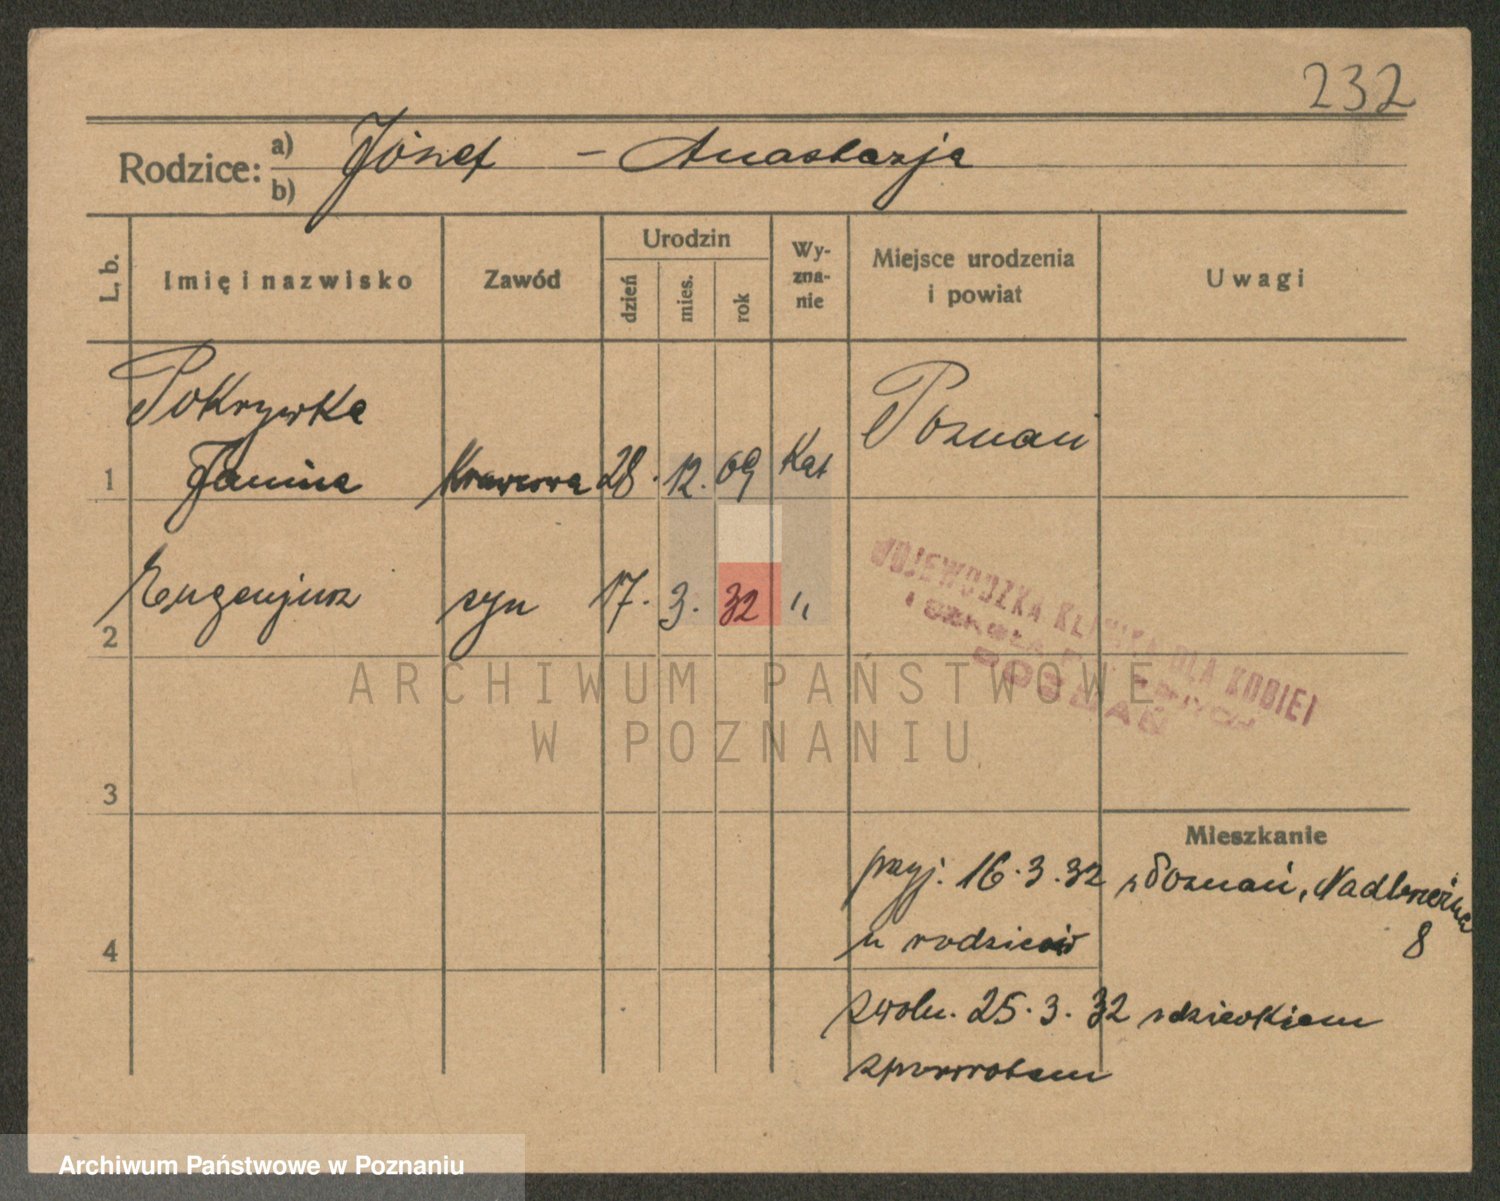 232
Rodzice: a) Józef - Anastazja
b)
L. b.
Imię i nazwisko
Zawód
Urodzin
dzień
mies.
rok
Wy-
zna-
nie
Miejsce urodzenia
i powiat
Uwagi
Pokrywka
1 Janina Krawcowa 28. 12. 09 Kat Poznań
2 Eugenjusz syn 17. 3. 32 "
WOJEWÓDZKA KLINIKA DLA KOBIET
I SZKOŁA
POZNAŃ
ARCHIWUM PAŃSTWOWE
W POZNANIU
3
Mieszkanie
przyj. 16.3.32 z Poznań, Nadbrzeżna
8
4 u rodziców
zwoln. 25.3.32 z dzieckiem
z powrotem
Archiwum Państwowe w Poznaniu